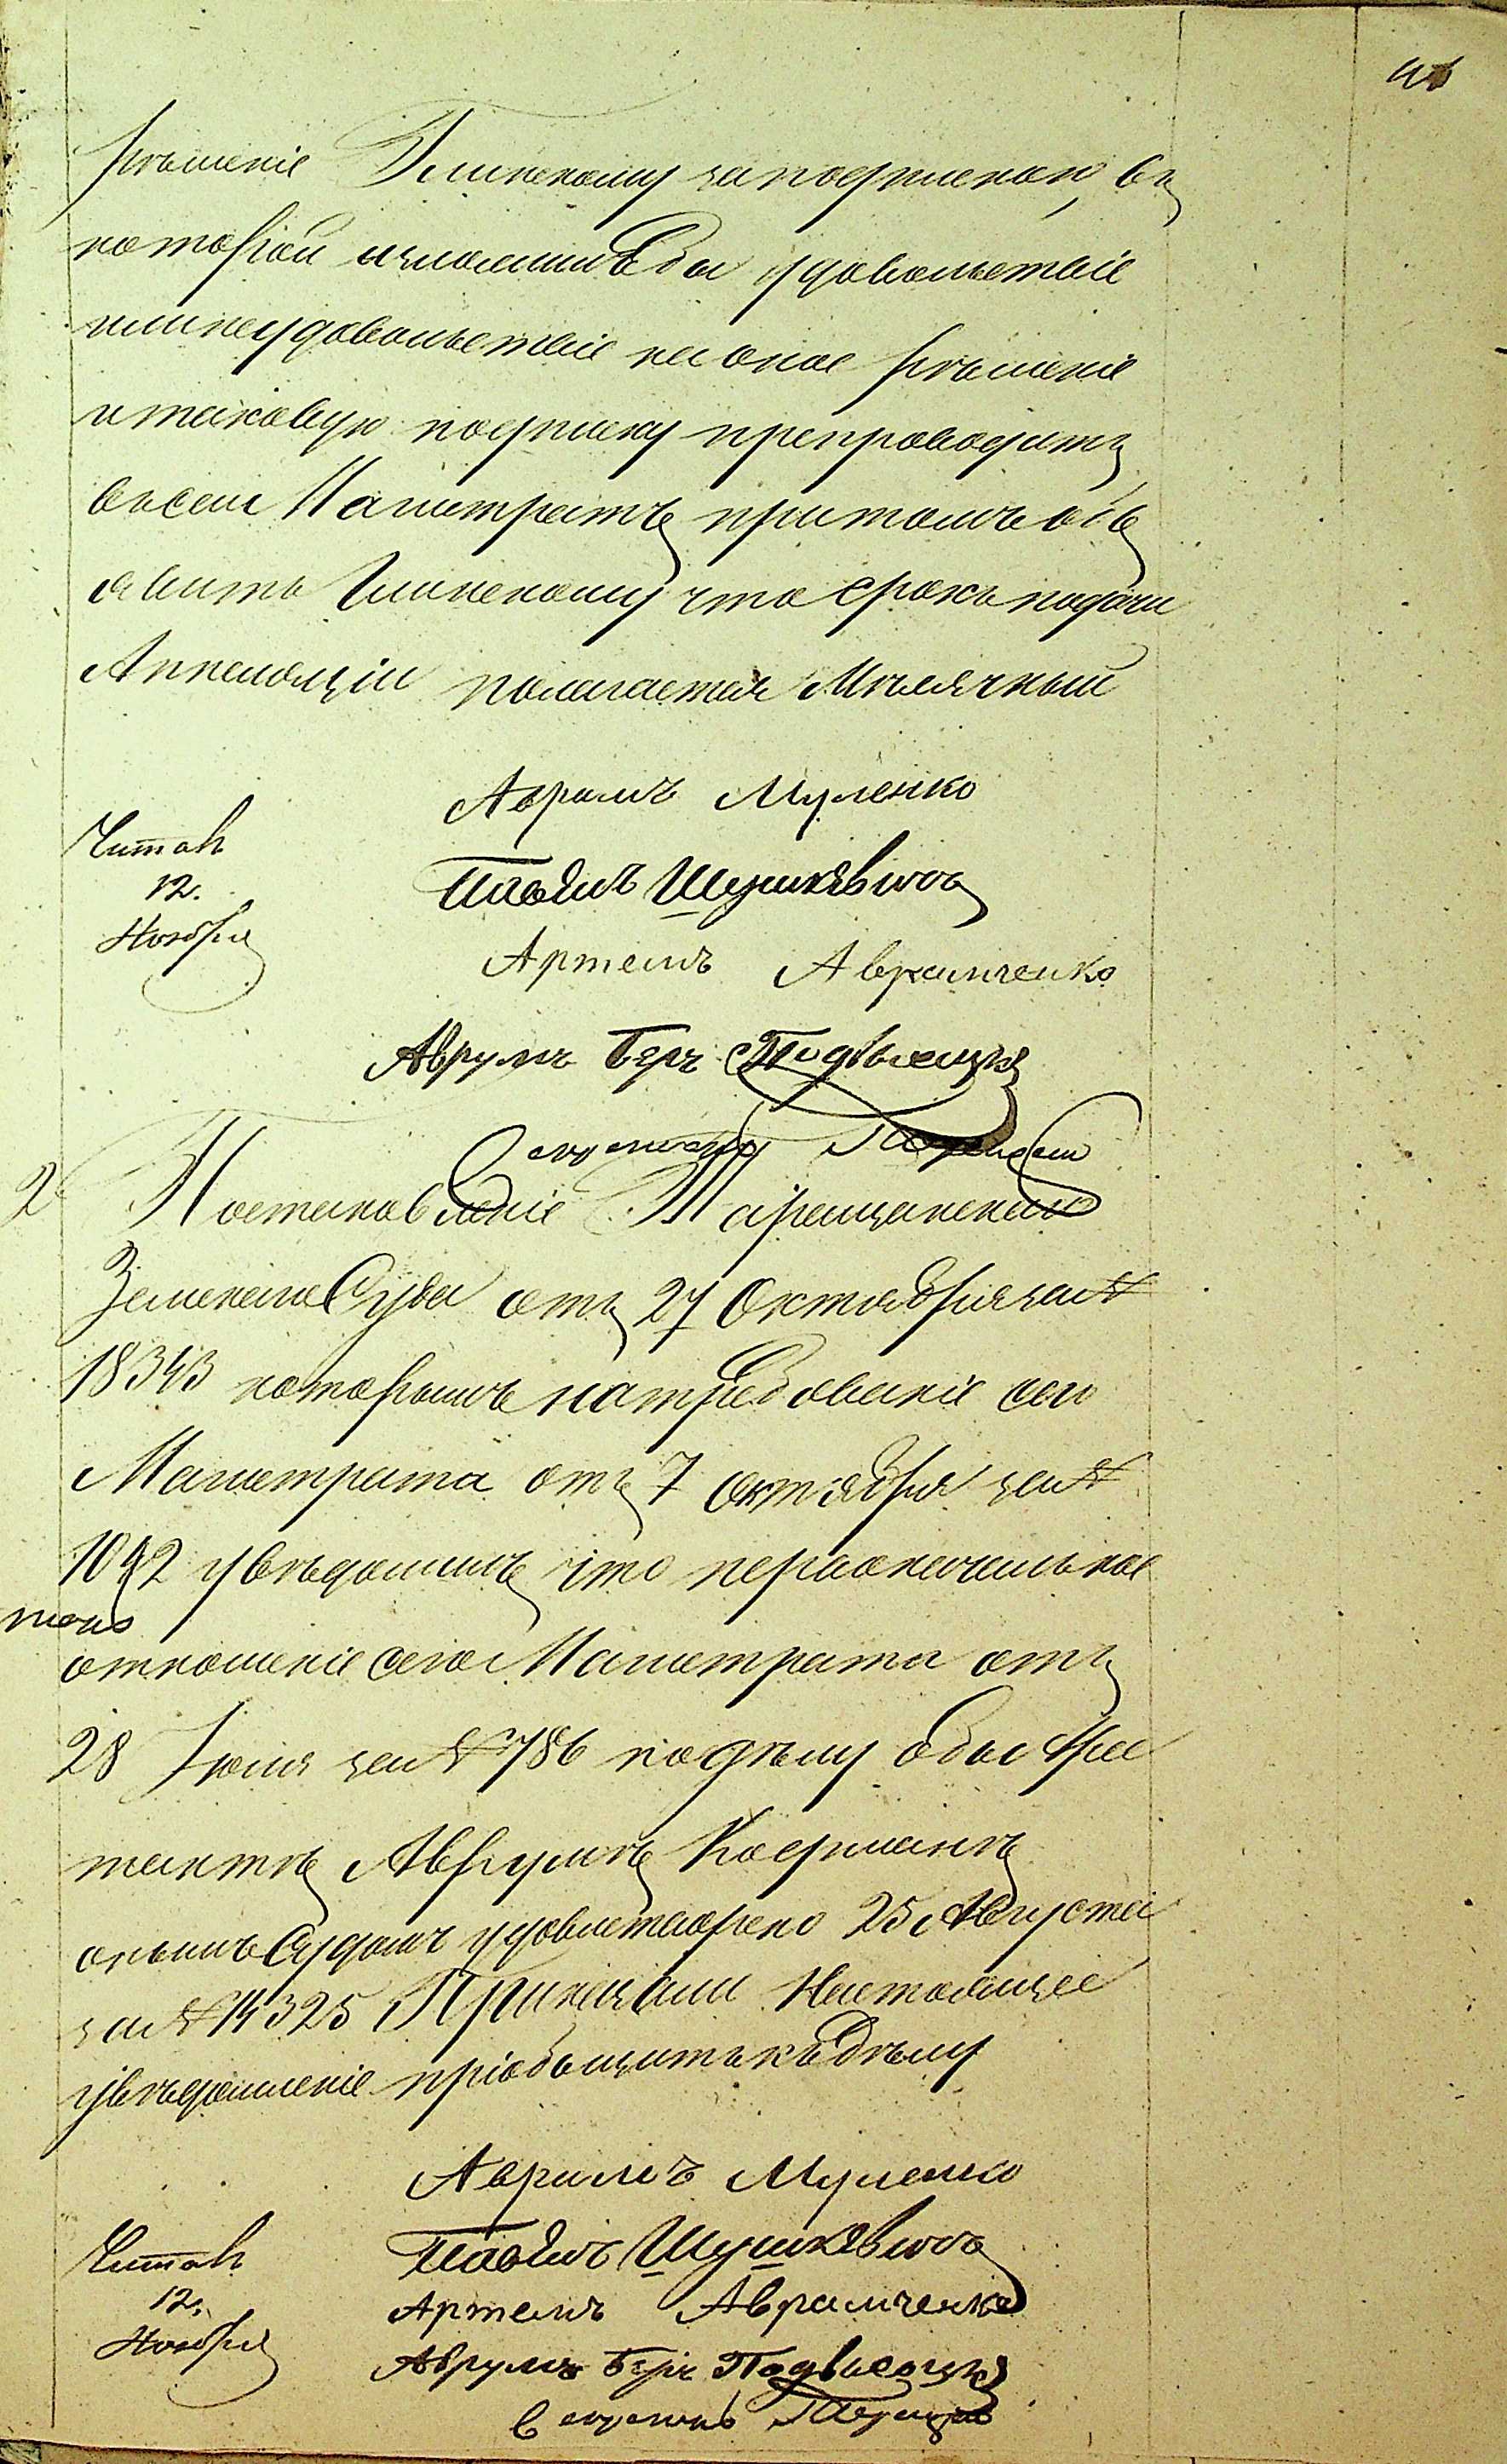 рѣшеніе Глинскому заподпискою, въ
которой изложилъбы удовольствіе
илинеудовольствіе на оное рѣшеніе
итаковую подписку препроводить
въсей Магистратъ притомъ объ
явить Глинскому что срокъ подачи
Аппеляціи полагается Мѣсячный
Аврамъ Муленко
Читалъ
12.
Ноября
Павелъ Шушкевичъ
Артемъ Аврамченко
Аврумъ Беръ Подвысоцкій
Секретарь
2 Постановленіе Таращанского
Земского Суда отъ 27 Октября за №
18343 которымъ натребованіе сего
Магистрата отъ 7 Октября за №
1092 увѣдомилъ что первоначальное
отношеніе сего Магистрата отъ
28 Іюля за № 786 подѣлу объ Аре
стантѣ Аврумѣ Кофманѣ
онымъ Судомъ удовлетворено 25 Августа
за № 14325 Приказали Настоящее
увѣдомленіе пріобщить къ Дѣлу
Аврамъ Муленко
Читалъ
12.
Ноября
Павелъ Шушкевичъ
Артемъ Аврамченко
Аврумъ Беръ Подвысоцкій
Секретарь